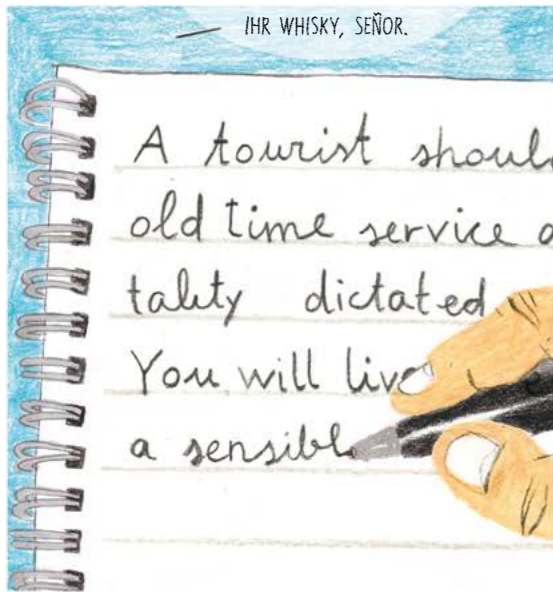 IHR WHISKY, SEÑOR.
A tourist shoul
old time service a
tality dictated
You will live
a sensibl